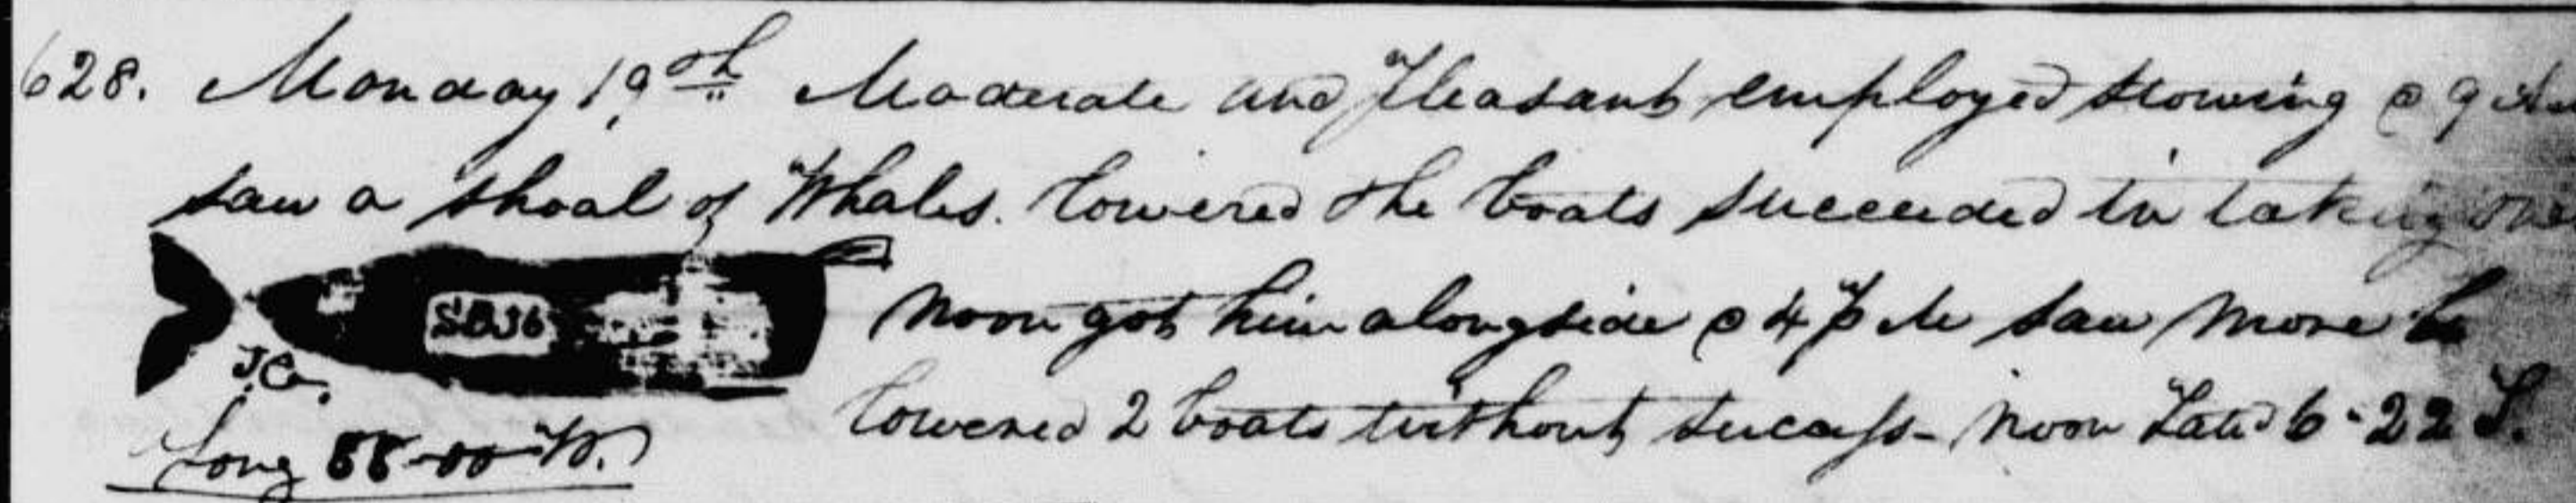 628. Monday 19th Moderate and Pleasant employed stowing @ 9 AM
saw a shoal of Whales. lowered the boats succeeded in taking one
SB36
noon got him alongside @ 4 PM saw more &
J.C.
lowered 2 boats without success - Noon Latd 6-22 S.
Long 88-00 W.